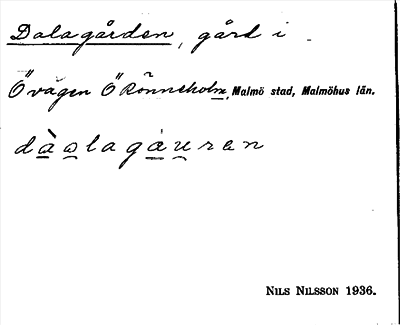 Dalagården, gård i
Övägen Ö Rönneholm, Malmö stad, Malmöhus län.
dàalagáuren
NILS NILSSON 1936.